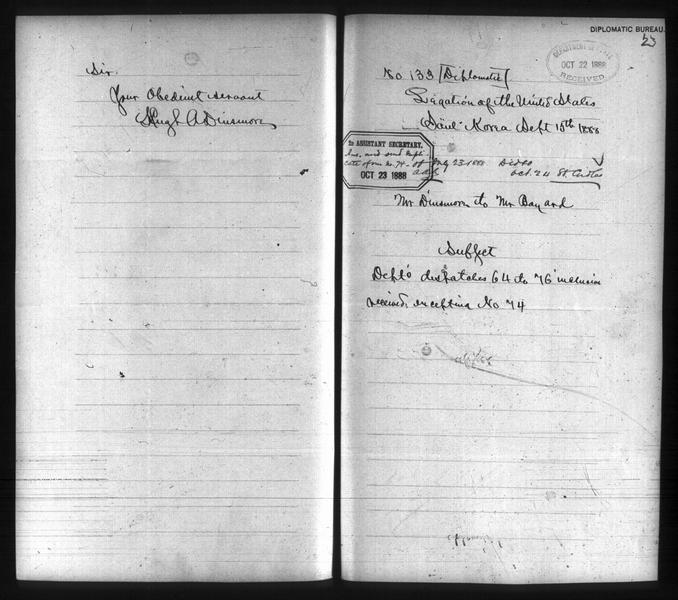 Sir.
Your Obedient servant
Hugh A Dinsmore
DIPLOMATIC BUREAU.
23
DEPARTMENT OF STATE
OCT 22 1888
RECEIVED.
No 133 [Diplomatic]
Legation of the United States
Söul Korea Sept 10th 1888
To ASSISTANT SECRETARY,
Ins. and send dupli
cate of our no. 74. of Aug 23. 1888
OCT 23 1888
Oct. 24
Mr Dinsmore to Mr Bayard
Subject
Dept's despatches 64 to 76 inclusive
received, excepting No 74